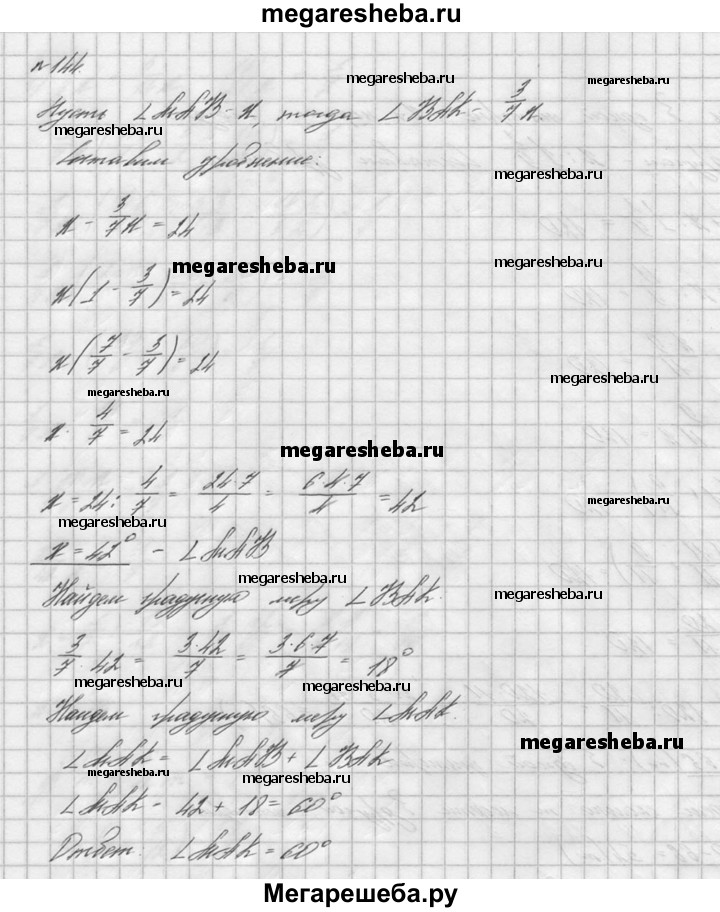 megaresheba.ru
№ 144.
megaresheba.ru
megaresheba.ru
Пусть ∠MAB - x, тогда ∠BAK - 3/7 x.
megaresheba.ru
Составим уравнение:
megaresheba.ru
x - 3/7 x = 24
megaresheba.ru
megaresheba.ru
x(1 - 3/7) = 24
x(7/7 - 3/7) = 24
megaresheba.ru
megaresheba.ru
x · 4/7 = 24
megaresheba.ru
x = 24 : 4/7 = 24·7/4 = 6·4·7/4 = 42
megaresheba.ru
megaresheba.ru
x = 42° - ∠MAB
megaresheba.ru
Найдем градусную меру ∠BAK.
megaresheba.ru
3/7 · 42 = 3·42/7 = 3·6·7/7 = 18°
megaresheba.ru
megaresheba.ru
Найдем градусную меру ∠MAK.
megaresheba.ru
∠MAK = ∠MAB + ∠BAK
megaresheba.ru
megaresheba.ru
∠MAK - 42 + 18 = 60°
Ответ: ∠MAK = 60°
Мегарешеба.ру